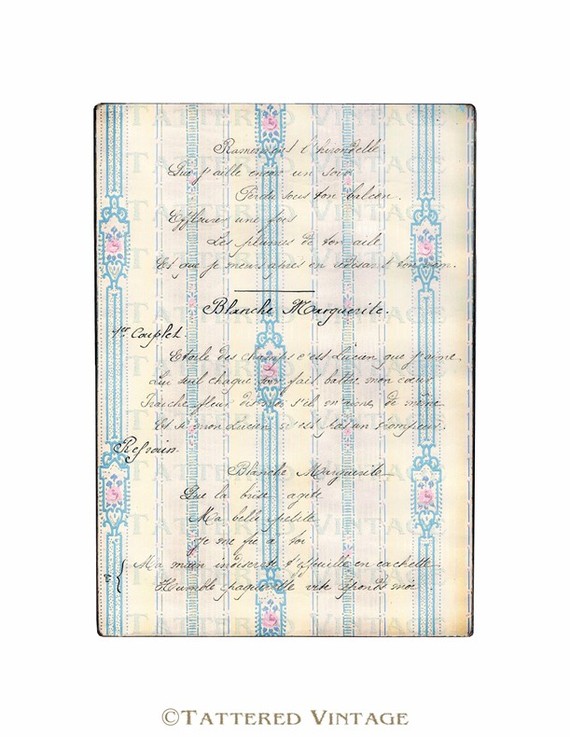 l'hirondelle
Que j'aille encor un soir
Perdu sous ton balcon.
Effleurer une fois
Les plumes de ton aile
Et que je meurs après en redisant ton nom.
Blanche Marguerite.
1er Couplet
Etoile des champs c'est Lucain que j'aime.
Lui seul chaque soir fait battre mon cœur
Fraiche fleur dis moi s'il en aime de même
Et si mon Lucain n'est pas un trompeur.
Refrain
Blanche Marguerite
Que la brise agite
Ma belle petite
Je me fie à toi
2 { Ma main indiscrete t'effeuille en cachette
Humble paquerette vite réponds moi
TATTERED VINTAGE
©TATTERED VINTAGE